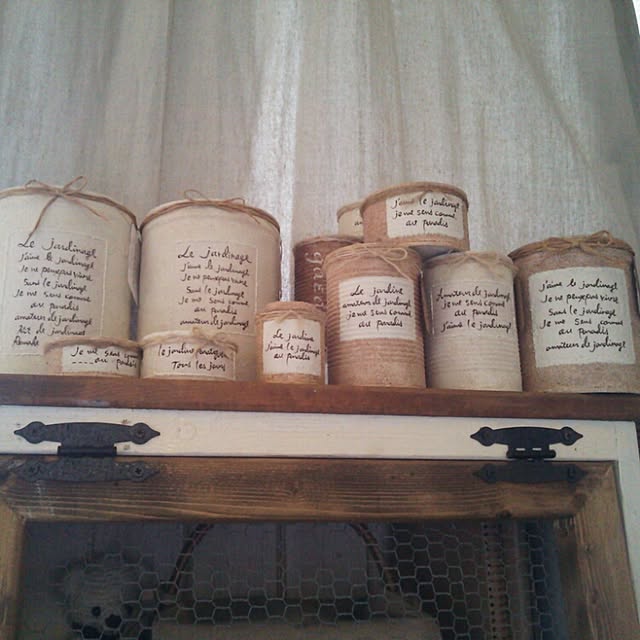 Le Jardinage
J'aime le jardinage
Je ne peux pas vivre
Sans le jardinage
Je me sens comme
au paradis
amateur de jardinage
Art de jardinage
Le Jardinage
J'aime le jardinage
Je ne peux pas vivre
Sans le jardinage
Je me sens comme
au paradis
amateur de jardinage
Je me sens
au paradis
Le jardin
Tous les jours
Le jardine
J'aime le jardinage
au paradis
gard
Le jardine
amateur de jardinage
Je me sens comme
au paradis
J'aime le jardinage
Je me sens comme
au paradis
Amateur de jardinage
Je me sens comme
au paradis
J'aime le jardinage
J'aime le jardinage
Je ne peux pas vivre
Sans le jardinage
Je me sens comme
au paradis
amateur de jardinage